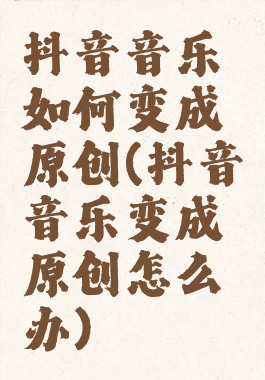 抖音音乐
如何变成
原创(抖音
音乐变成
原创怎么
办)